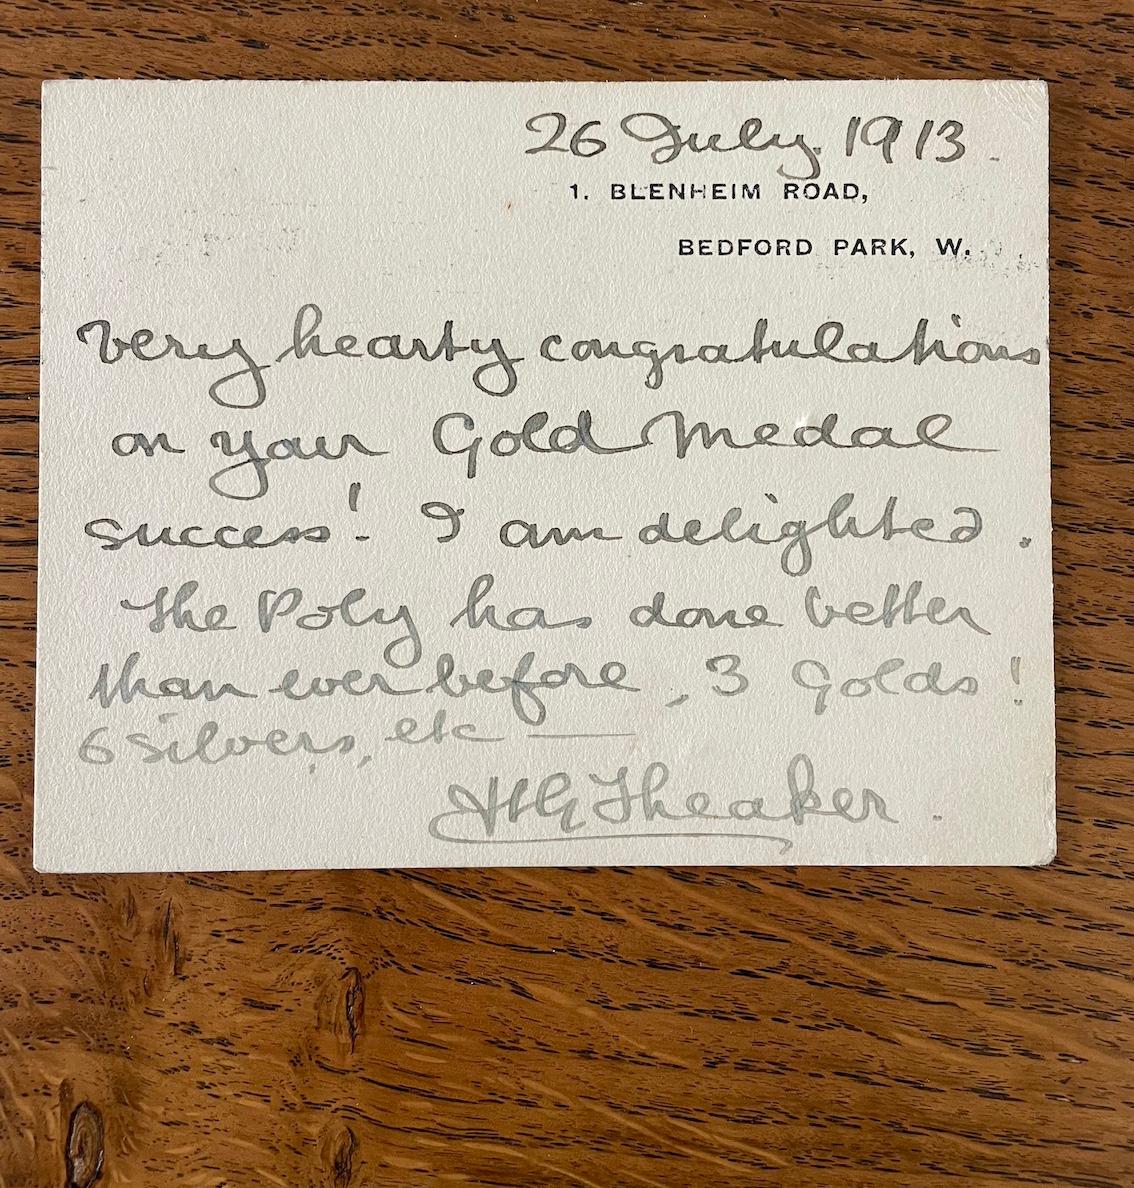 26 July. 1913.
1. BLENHEIM ROAD,
BEDFORD PARK, W.
Very hearty congratulations
on your Gold Medal
success! I am delighted.
The Poly has done better
than ever before, 3 Golds!
6 silvers, etc —
HG Theaker.